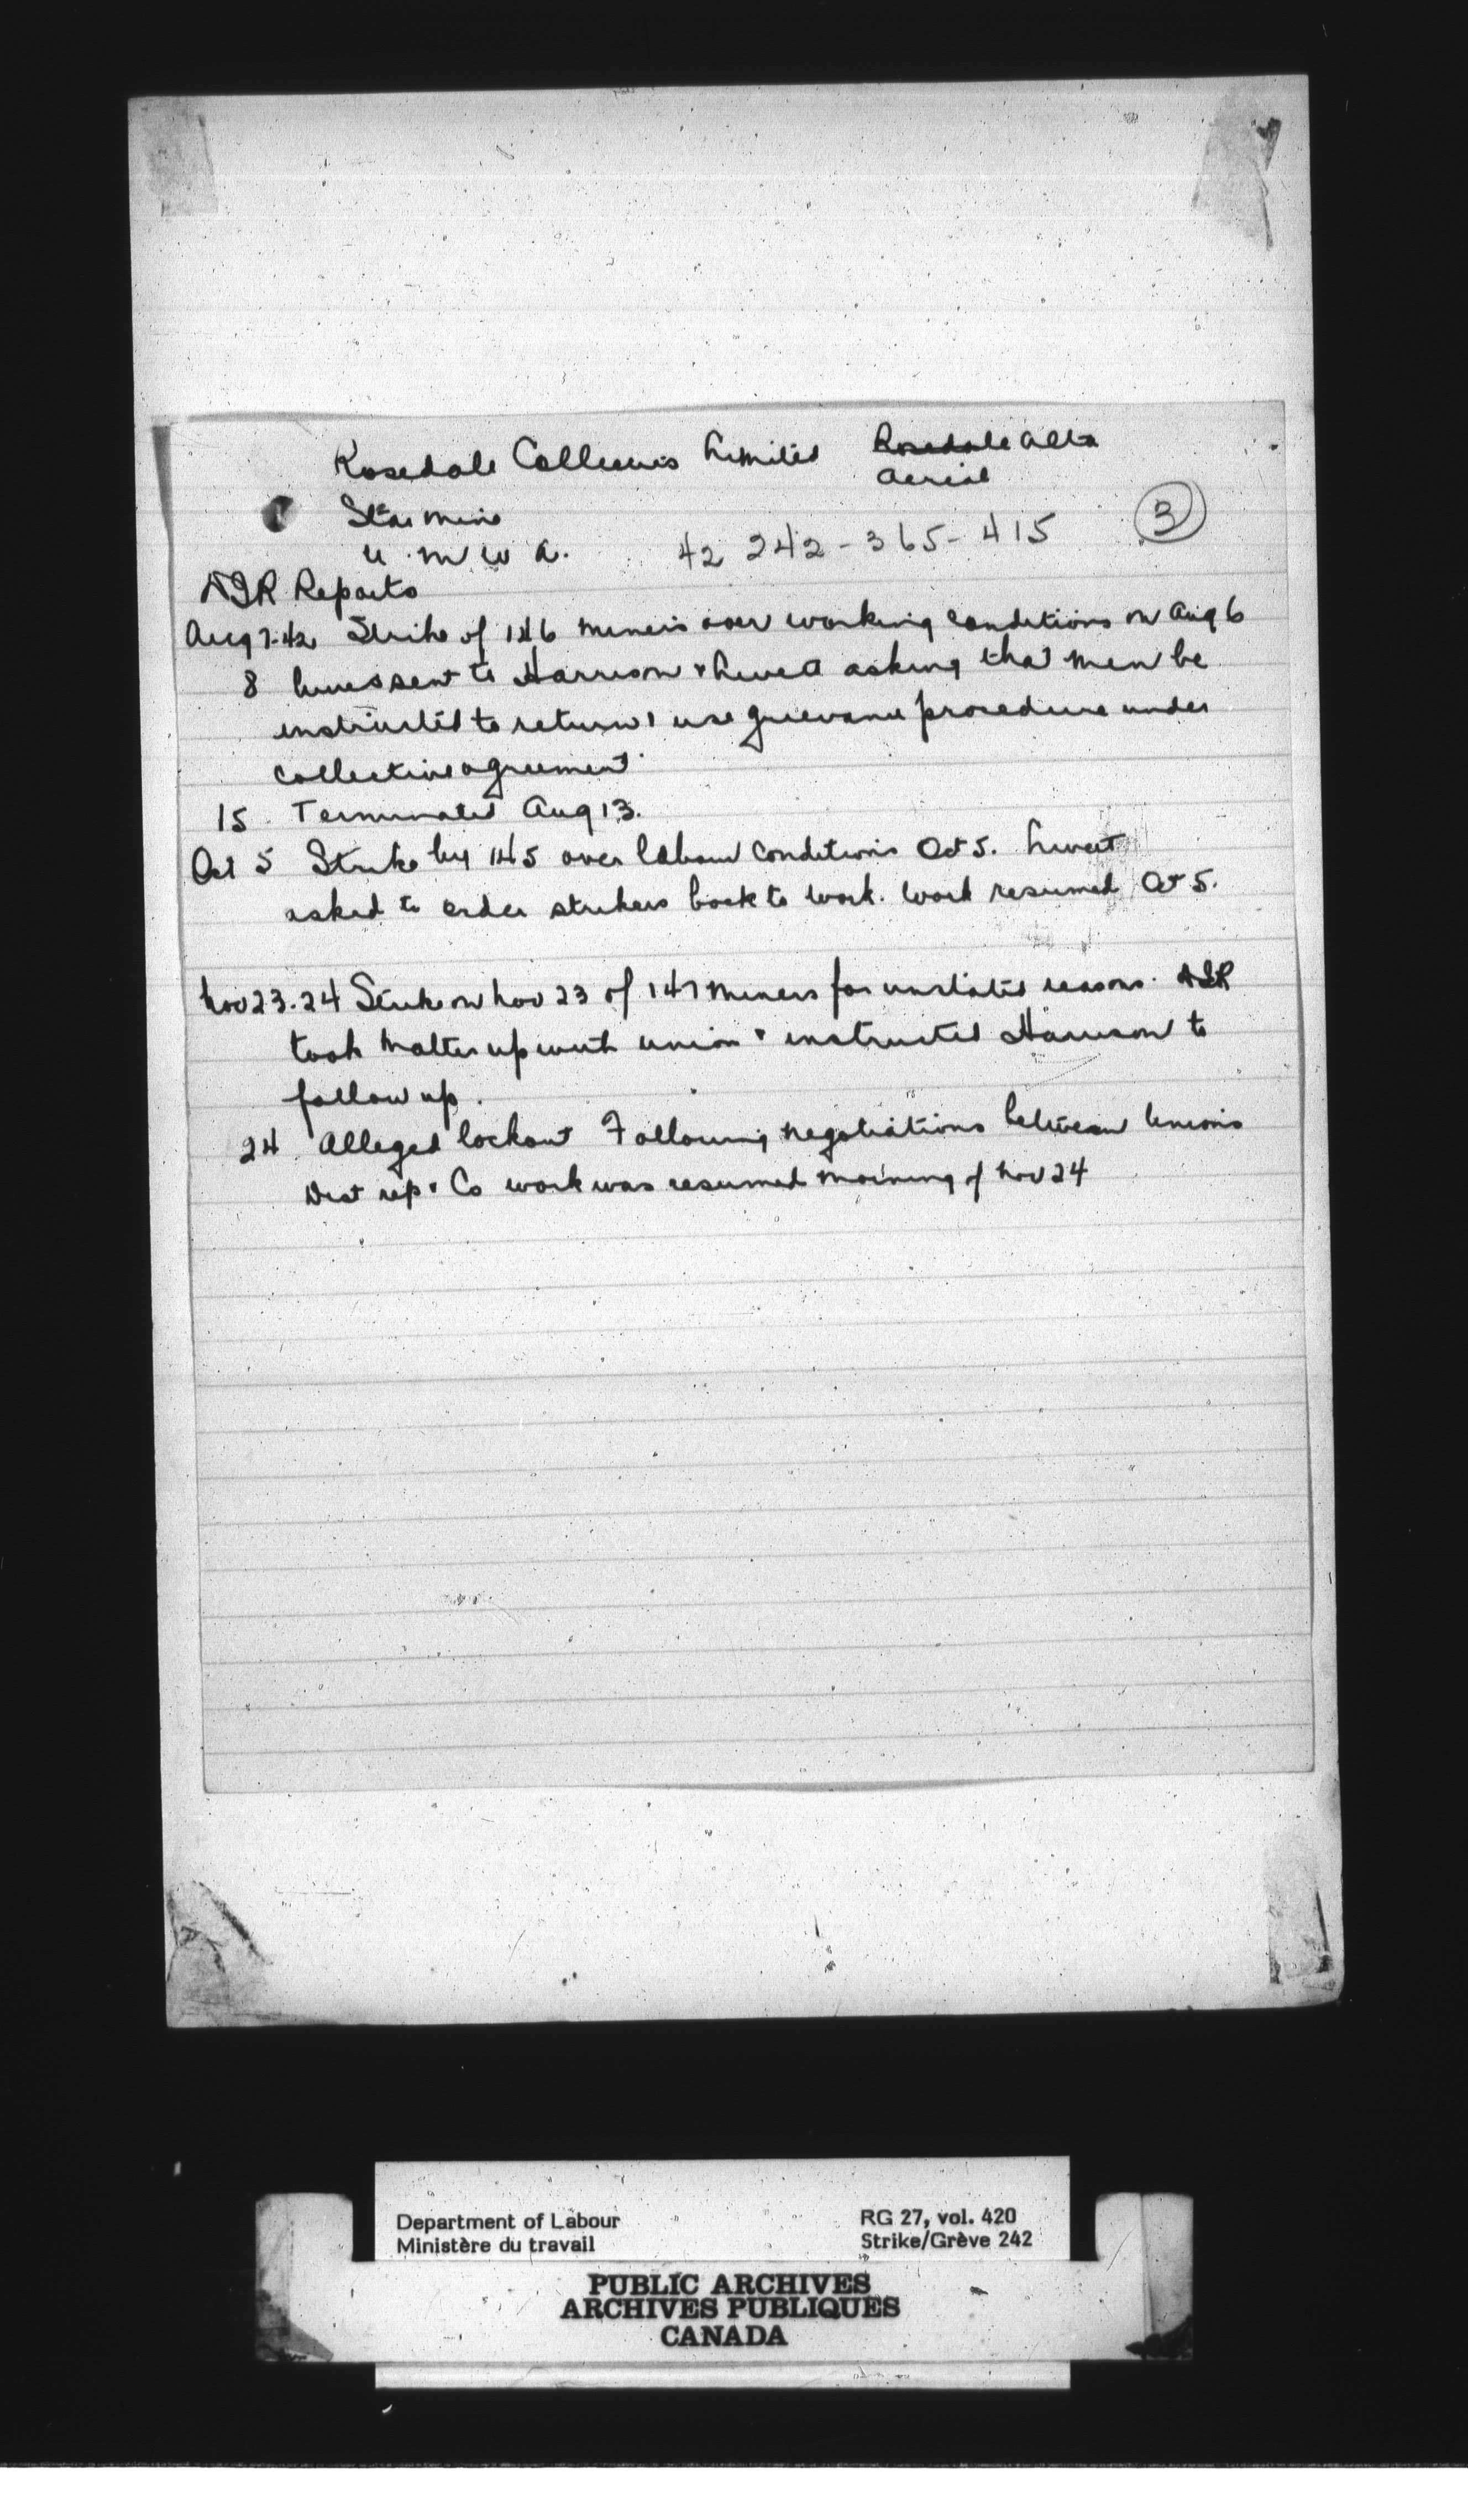 Rosedale Collieries Limited Rosedale Alta
Aerial
Star Mine
U. M W A. 42 242-365-415 3
Reports
Aug 7-42 Strike of 146 miners over working conditions on Aug 6
8 Wires sent to Harrison & Livett asking that men be
instructed to return & use grievance procedure under
collective agreement.
15 Terminated Aug 13.
Oct 5 Strike by 145 over labour conditions Oct 5. Livett
asked to order strikers back to work. Work resumed Oct 5.
Nov 23-24 Strike on Nov 23 of 147 miners for unstated reasons.
took matter up with union & instructed Harrison to
follow up.
24 Alleged lockout Following negotiations between Unions
Dist rep & Co work was resumed morning of Nov 24
Department of Labour RG 27, vol. 420
Ministère du travail Strike/Grève 242
PUBLIC ARCHIVES
ARCHIVES PUBLIQUES
CANADA